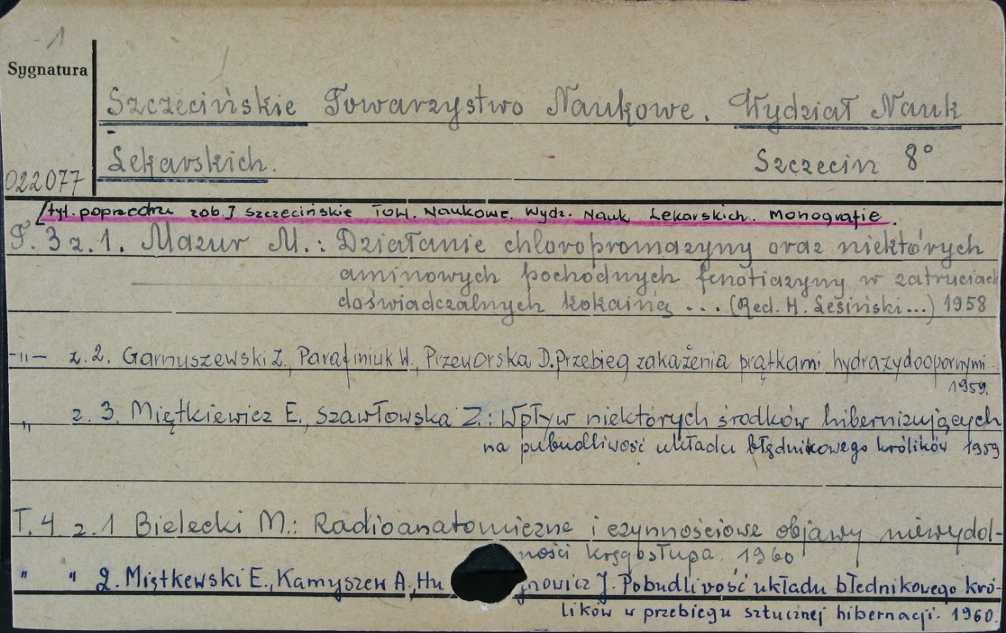 1
Sygnatura
Szczecińskie Towarzystwo Naukowe. Wydział Nauk
Lekarskich. Szczecin 8°
022077
[tyt. poprzedni zob.] Szczecińskie Tow. Naukowe. Wydz. Nauk Lekarskich. Monografie.
T. 3 z. 1. Mazur M.: Działanie chloropromazyny oraz niektórych
aminowych pochodnych fenotiazyny w zatruciach
doświadczalnych kokainą ... (Red. H. Leśiński...) 1958
-"- z. 2. Garnuszewski Z., Parafiniuk W., Przeworska D. Przebieg zakażenia prątkami hydrazydoopornymi.
1959.
" z. 3. Miętkiewicz E., Szawłowska Z.: Wpływ niektórych środków hibernizujących
na pubudliwość układu błędnikowego królików 1959
T. 4 z. 1 Bielecki M.: Radioanatomiczne i czynnościowe objawy niewydol-
ności kręgosłupa. 1960
" " 2. Miętkewski E., Kamyszew A., Hu nowicz J. Pobudliwość układu błednikowego kró-
lików w przebiegu sztucznej hibernacji. 1960.